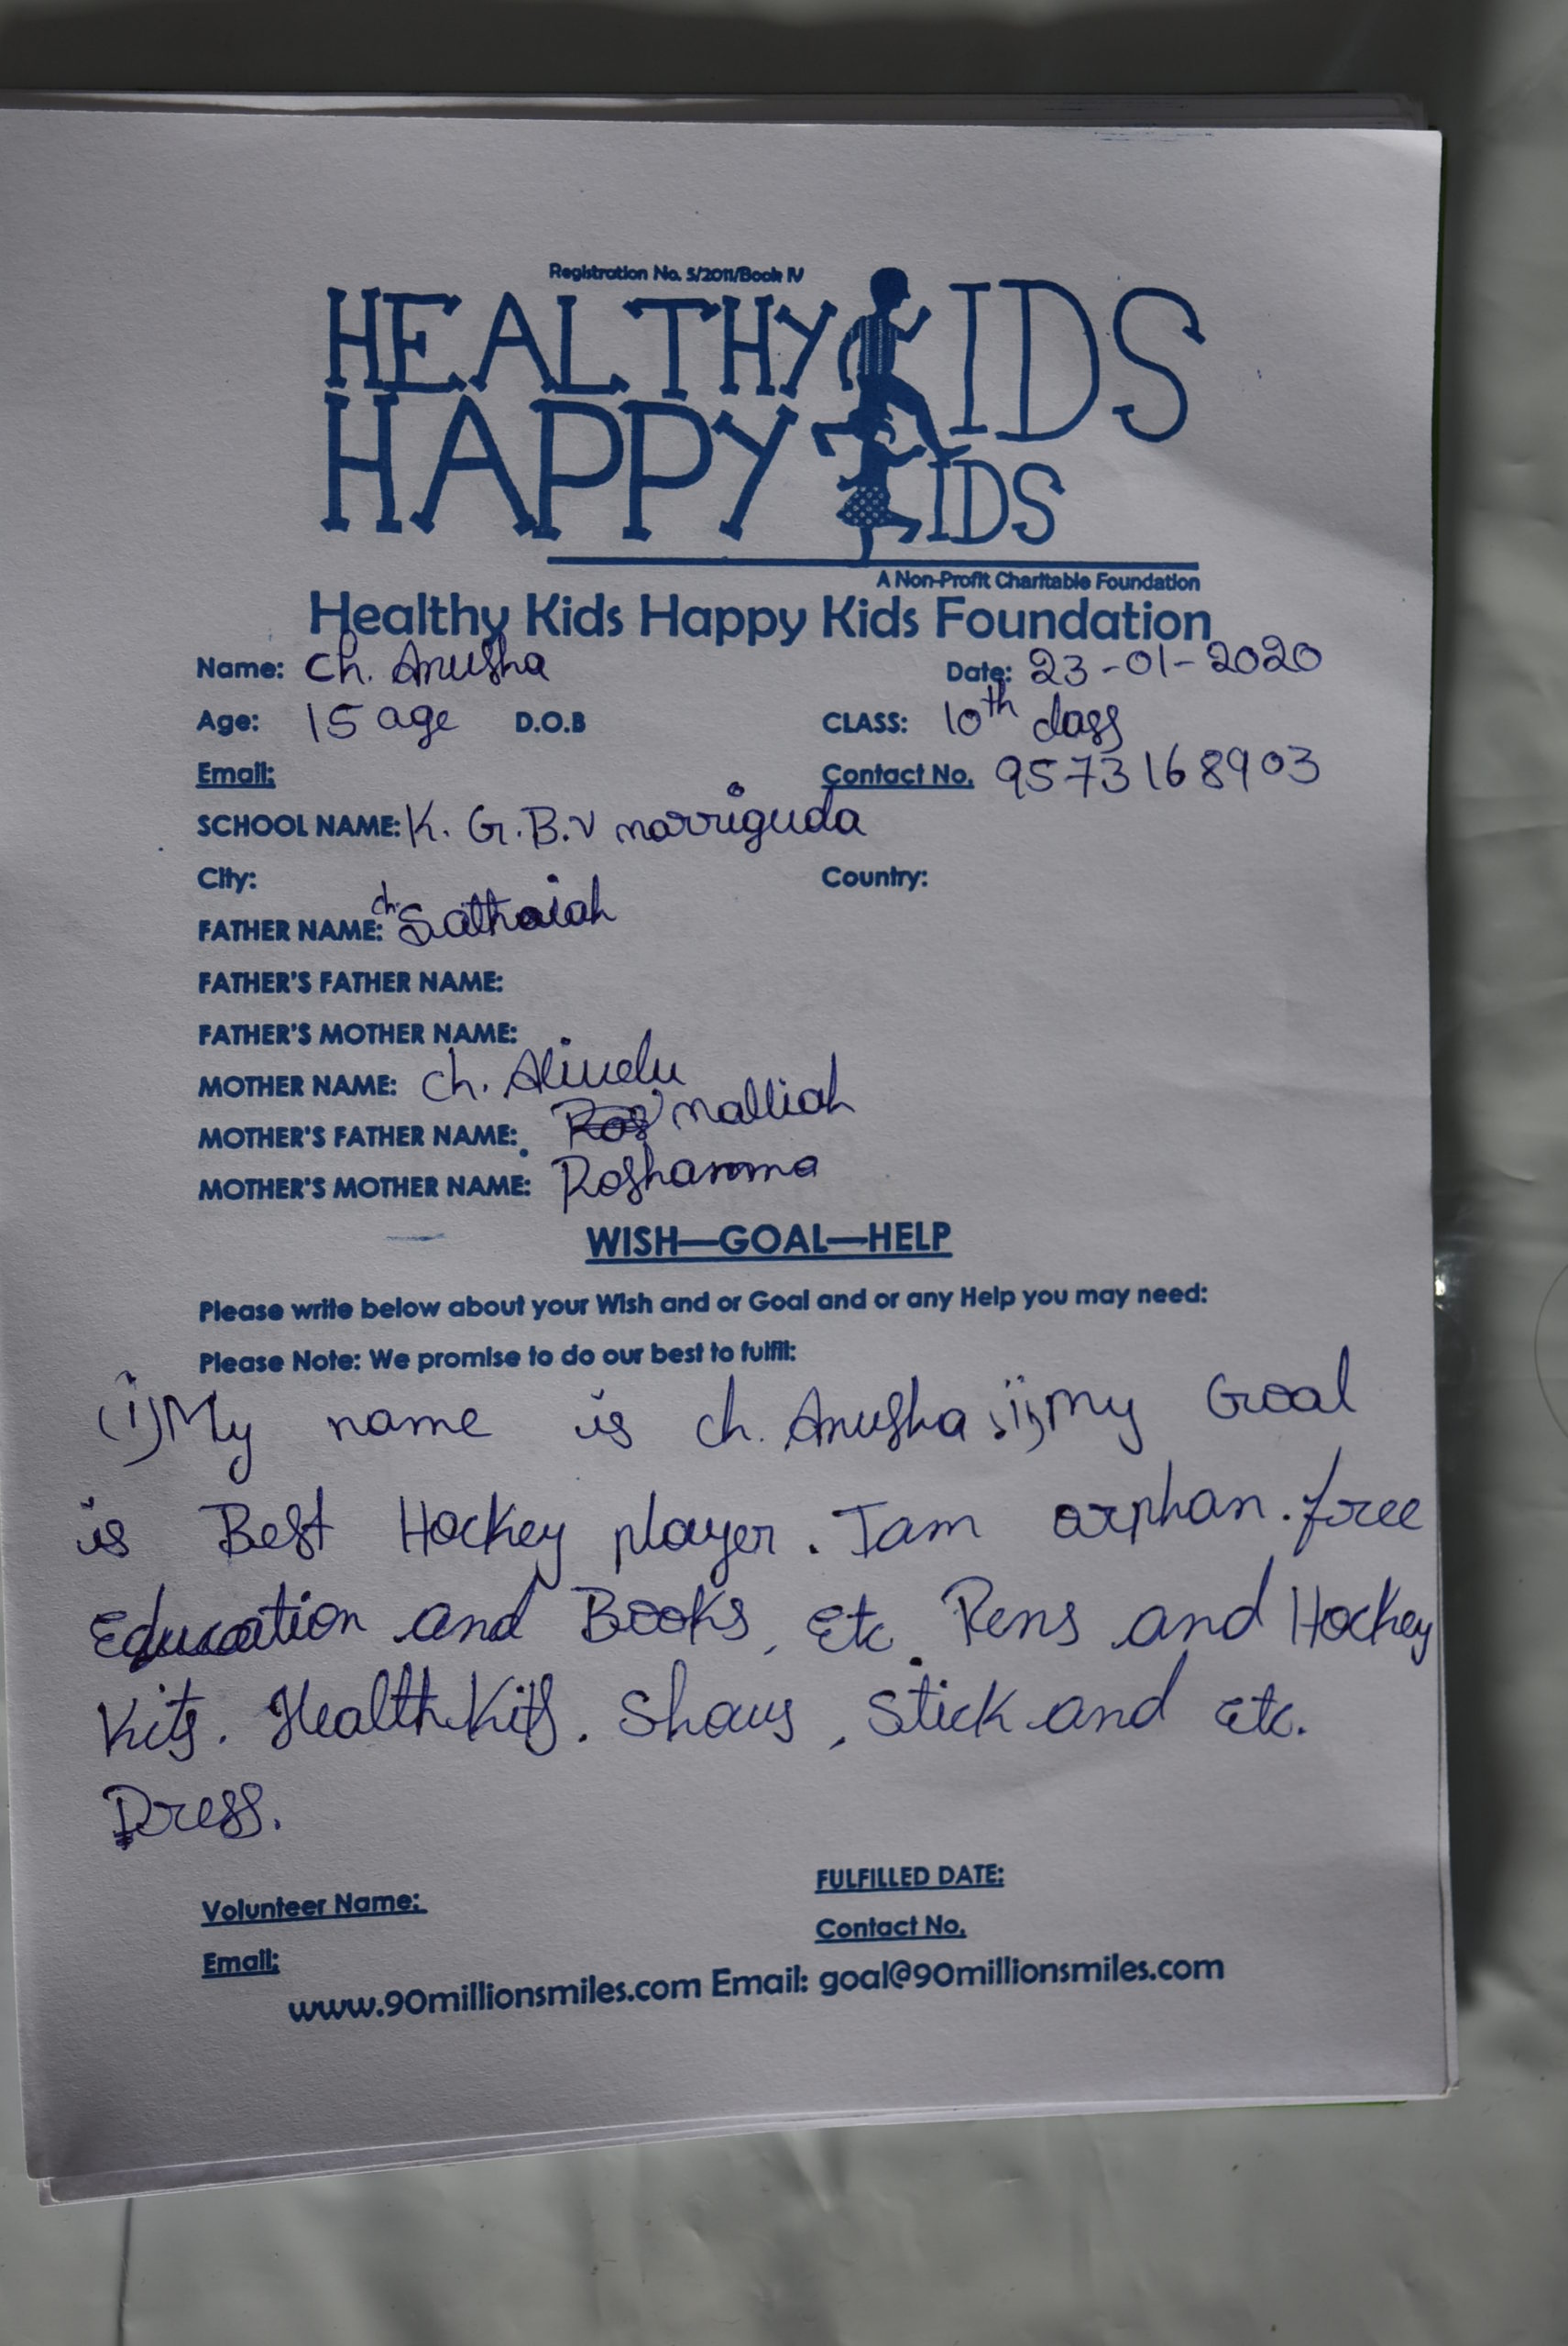 Registration No. 5/2011/Book IV
HEALTHY KIDS
HAPPY KIDS
A Non-Profit Charitable Foundation
Healthy Kids Happy Kids Foundation
Name: ch. Anusha Date: 23-01-2020
Age: 15 age D.O.B CLASS: 10th class
Email: Contact No. 9573168903
SCHOOL NAME: K. G.B.V marriguda
City: Country:
FATHER NAME: ch. Sathaiah
FATHER'S FATHER NAME:
FATHER'S MOTHER NAME:
MOTHER NAME: ch. Alivelu
MOTHER'S FATHER NAME: malliah
MOTHER'S MOTHER NAME: Roshamma
WISH—GOAL—HELP
Please write below about your Wish and or Goal and or any Help you may need:
Please Note: We promise to do our best to fulfil:
(i) My name is ch. Anusha ii) my Goal
is Best Hockey player. I am orphan. free
Education and Books, Etc. Pens and Hockey
Kits. Health Kits. Shous, Stick and etc.
Dress.
FULFILLED DATE:
Volunteer Name:
Contact No.
Email:
www.90millionsmiles.com Email: goal@90millionsmiles.com